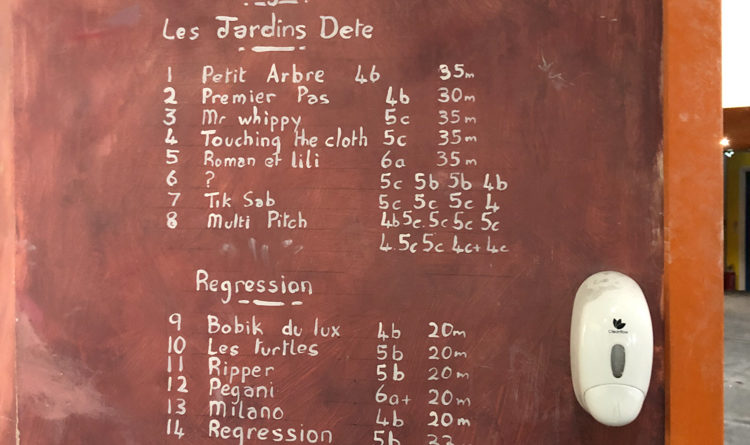 Les Jardins Dete
1 Petit Arbre 4b 35m
2 Premier Pas 4b 30m
3 Mr whippy 5c 35m
4 Touching the cloth 5c 35m
5 Roman et lili 6a 35m
6 ? 5c 5b 5b 4b
7 Tik Sab 5c 5c 5c 4
8 Multi Pitch 4b 5c. 5c 5c 5c
4. 5c 5c 4c+ 4c
Regression
9 Bobik du lux 4b 20m
10 Les turtles 5b 20m
11 Ripper 5b 20m
12 Pegani 6a+ 20m
13 Milano 4b 20m
14 Regression 5b